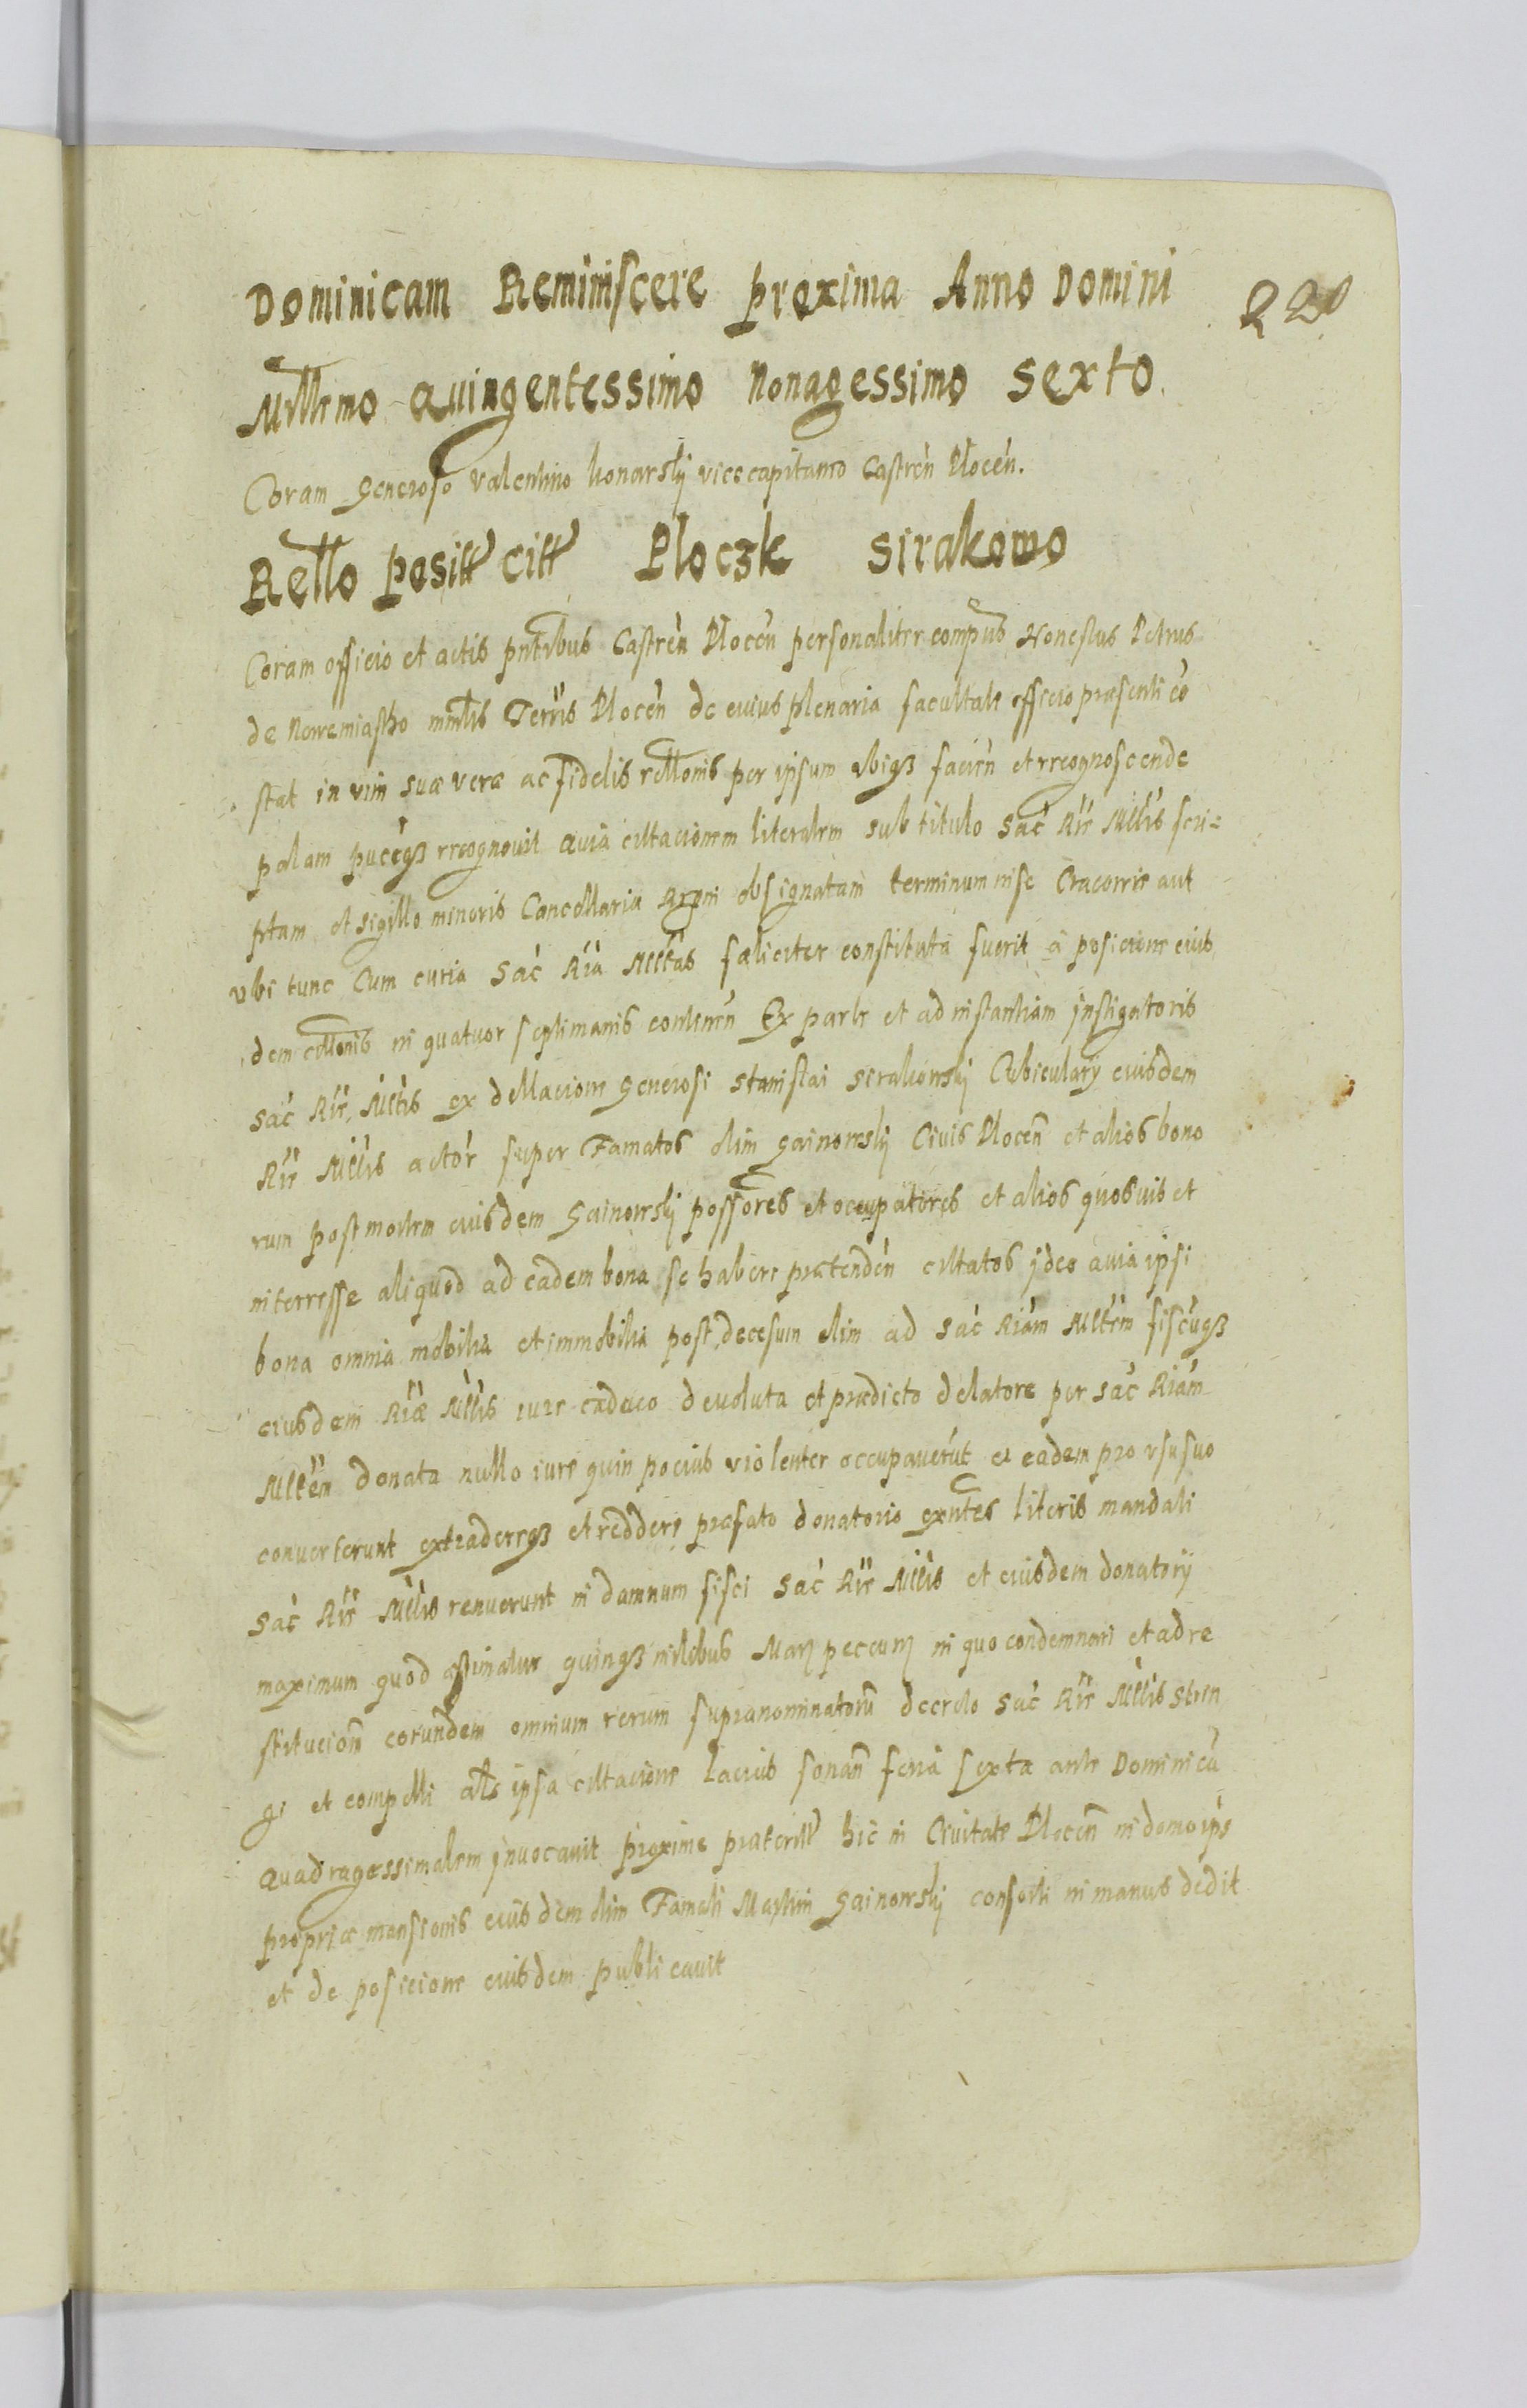 Dominicam Reminiscere proxima Anno Domini
220
Millrmo Quingentessimo Nonagessimo Sexto
Coram Generoso Valentino Konarskj vicecapitaneo Castren Plocen.
Rello positt citt Ploczk Sirakowo
Coram officio et actis pntibus Castren Plocen personaliter compns Honestus Petrus
de Nowemiastho mnlis Terris Plocen de cuius plenaria facultate officio præsenti co
stat in vim suæ veræ ac fidelis rellonis per ipsum vbiqз facien et recognoscende
palam puceqз recognovit Quia cittacionem literalem sub titulo Sac Rie Mttis scri=
ptam et sigillo minoris Cancellariæ Regni obsignatam terminum in se Cracovie aut
vbi tunc Cum curia Sac Ria Mttas fæliciter constituta fuerit a posicione eius
dem cittonis in quatuor septimanis continen Ex parte et ad instantiam Instigatoris
Sac Rie Mttis ex dellacione Generosi Stanislai Sirakowskj Cubicularij eiusdem
Rie Mttis actor super Famatos olim Gainowskj Civis Plocen et alios bono
rum post mortem eiusdem Gainowskj possores et occupatores et alios quosvis et
interresse aliquod ad eadem bona se habere prætenden cittatos Ideo quia ipsi
bona omnia mobilia et immobilia post decesum olim ad Sac Riam Mttem fiscuqз
eiusdem Riæ Mttis iure caduco devoluta et prædicto delatore per Sac Riam
Mttem donata nullo iure quin pocius violenter occupaverut et eadem pro vsu suo
converterunt extradereqз et reddere præfato donatorio exntes literis mandati
Sac Rie Mttis renuerunt in damnum fisci Sac Rie Mttis et eiusdem donatorij
maximum quod æstimatur quinqз milibus Mar peccun in quo condemnari et ad re
stitucionem eorundem omnium rerum supranominatoru decreto Sac Rie Mttis strin
gi et compelli als ipsa cittacione lacius sonan feria sexta ante Dominica
Quadragessimalem Invocavit proxime præteritt hic in Civitate Plocen in domo ips
propriæ mansionis eiusdem olim Famati Martini Gainowskj consorti in manus dedit
et de posicione eiusdem publicavit